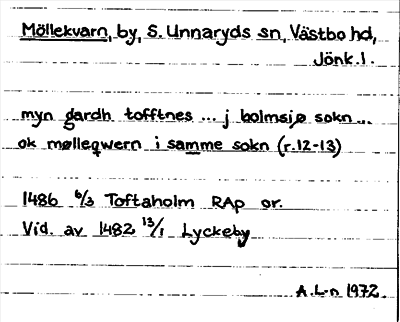 Möllekvarn, by, S. Unnaryds sn, Västbo hd,
Jönk. l.
myn gardh tofftnes ... j bolmsjø sokn ...
ok mølleqwern i samme sokn (r. 12-13)
1486 6/3 Toftaholm RAp or.
Vid. av 1482 13/1 Lyckeby
A. L-n 1972.